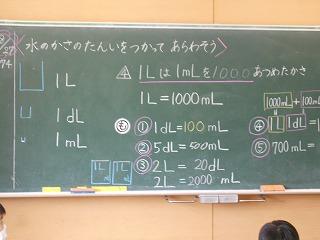 27
74
水のかさのたんいをつかって あらわそう
1L
1dL
1mL
1Lは1mLを1000あつめたかさ
1L=1000mL
も ① 1dL=100mL
② 5dL=500mL
③ 2L=20dL
2L=2000mL
1L 1L
1000mL+100mL
④ 1L 1dL=1
⑤ 700mL=